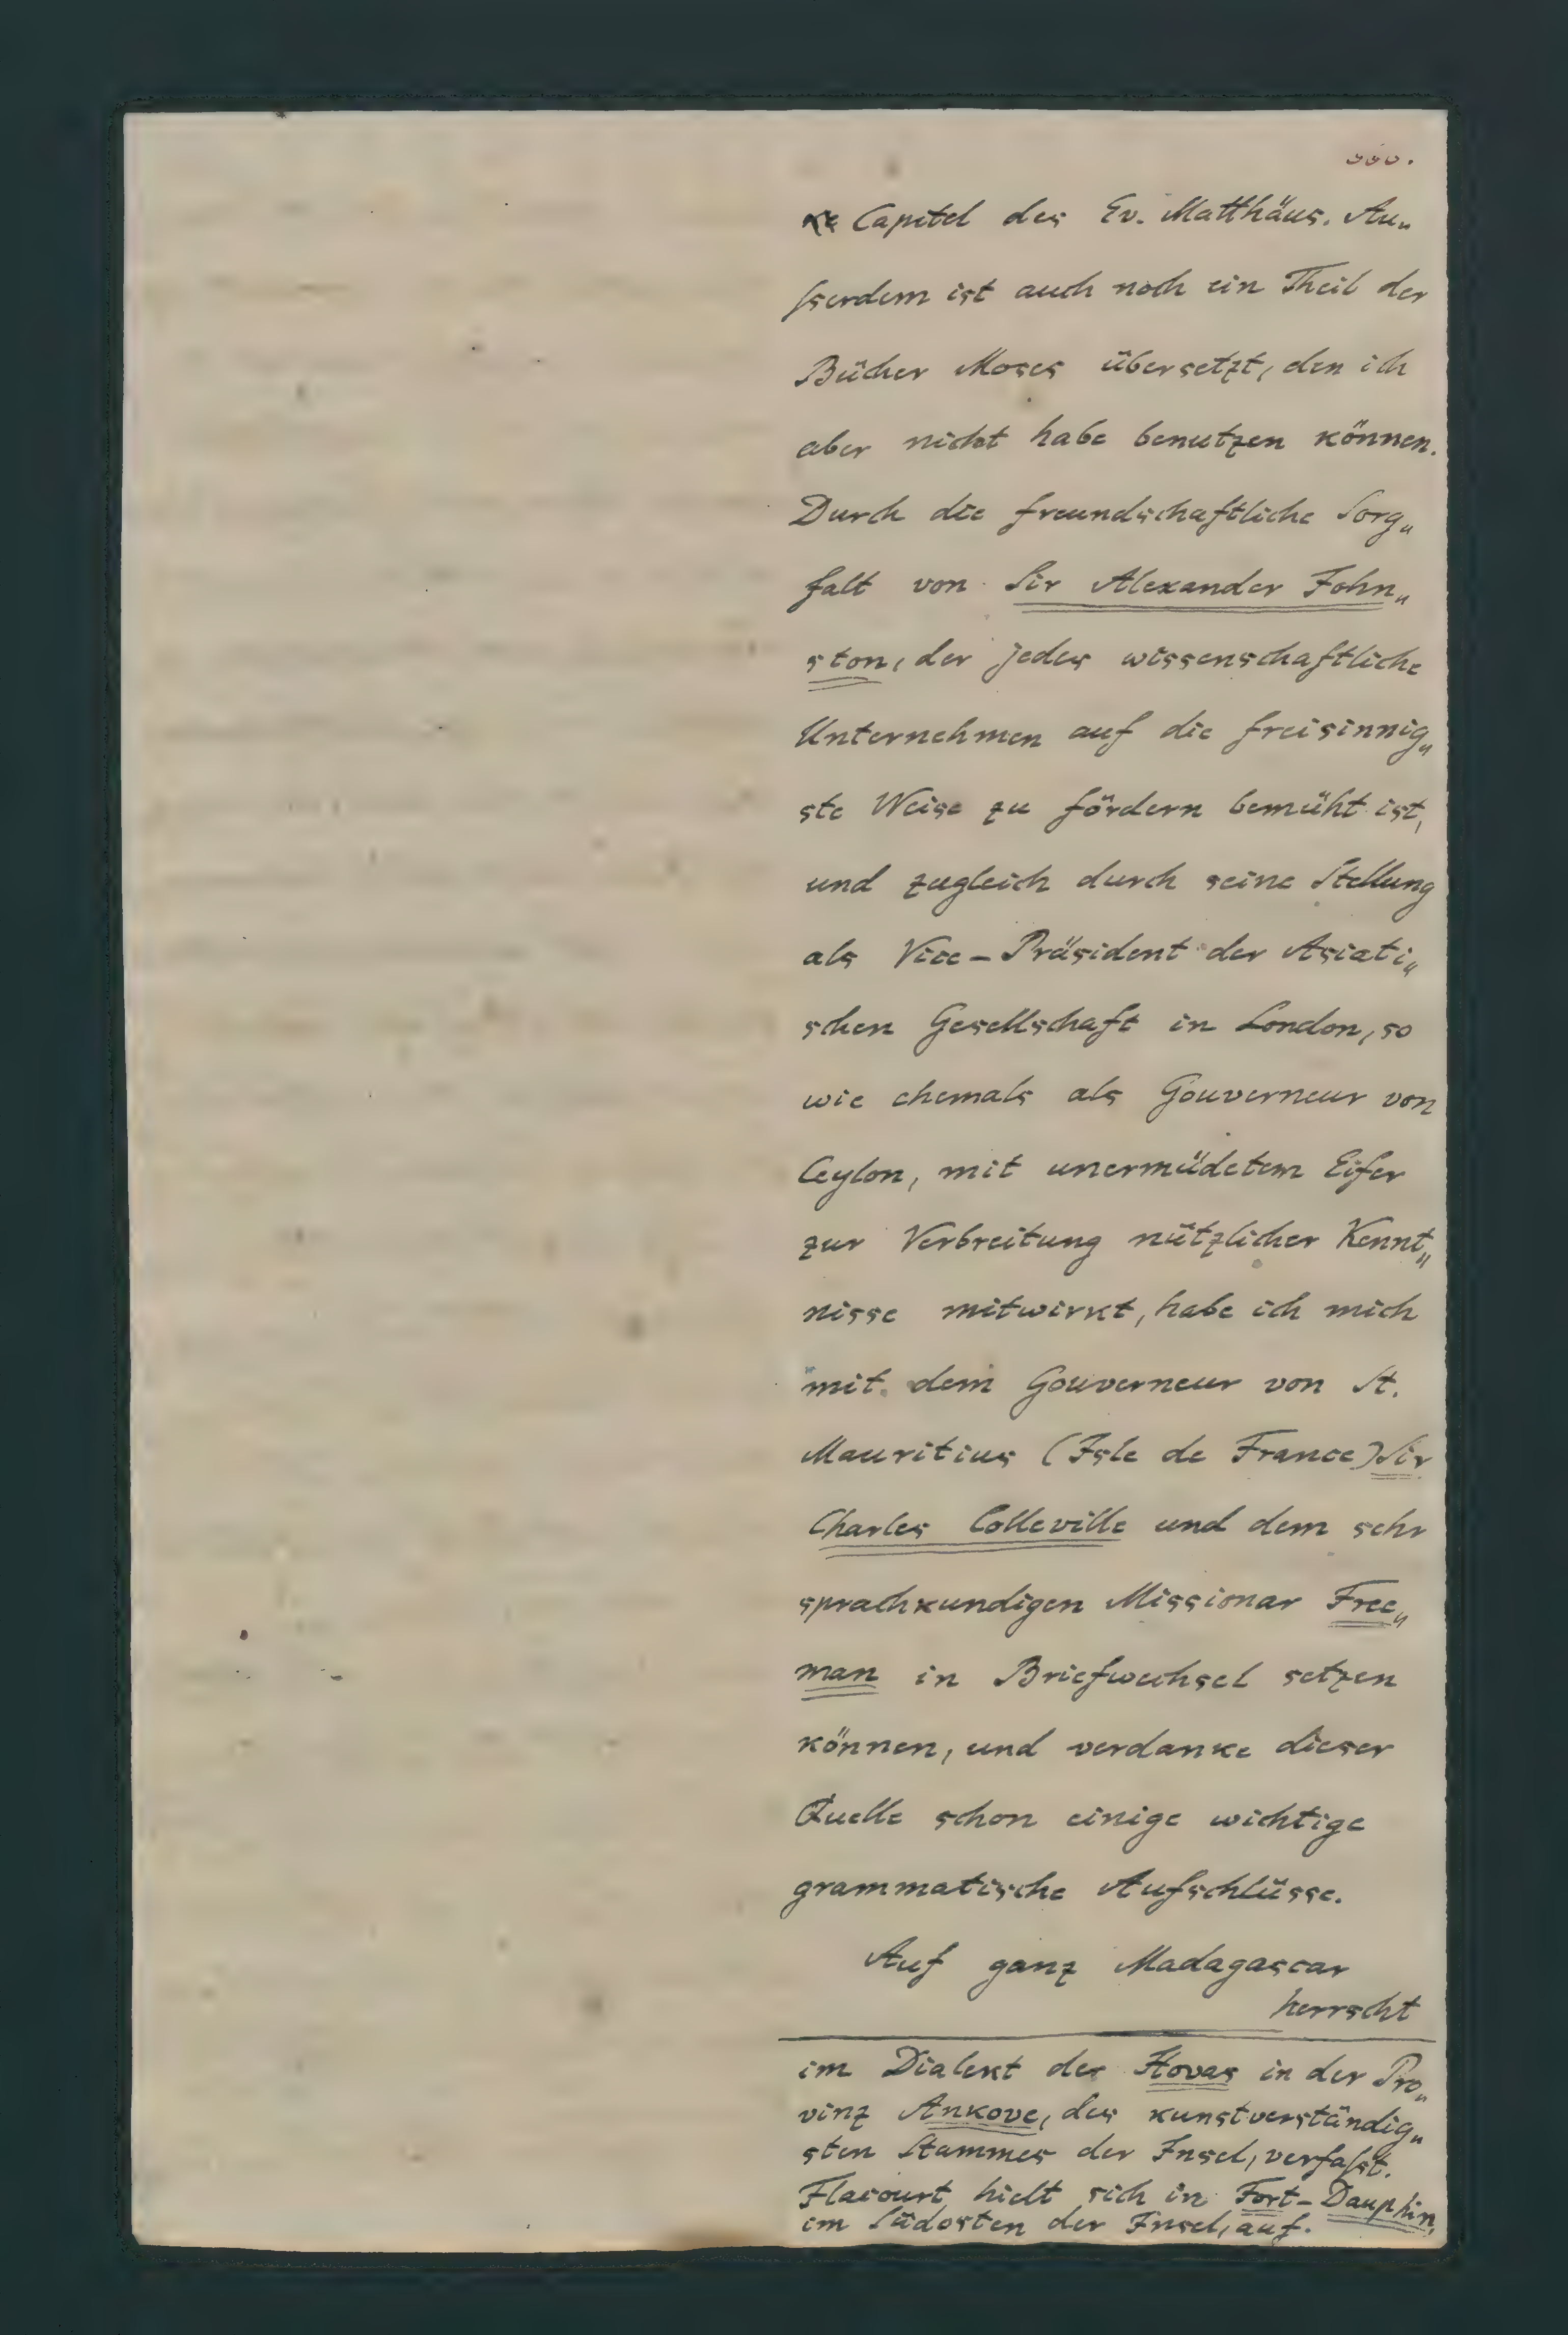 Capitel des Ev. Matthäus. Au„
sserdem ist auch noch ein Theil der
Bücher Moses übersetzt, den ich
aber nicht habe benutzen können.
Durch die freundschaftliche Sorg„
falt von Sir Alexander John„
ston, der jedes wissenschaftliche
Unternehmen auf die freisinnig„
ste Weise zu fördern bemüht ist,
und zugleich durch seine Stellung
als Vice-Präsident der Asiati„
schen Gesellschaft in London, so
wie ehemals als Gouverneur von
Ceylon, mit unermüdetem Eifer
zur Verbreitung nützlicher Kennt„
nisse mitwirkt, habe ich mich
mit dem Gouverneur von St.
Mauritius (Isle de France) Sir
Charles Colleville und dem sehr
sprachkundigen Missionar Free„
man in Briefwechsel setzen
können, und verdanke dieser
Quelle schon einige wichtige
grammatische Aufschlüsse.
Auf ganz Madagascar
herrscht
im Dialekt der Hovas in der Pro„
vinz Ankove, des kunstverständig„
sten Stammes der Insel, verfasst.
Flacourt hielt sich in Fort-Dauphin,
im Südosten der Insel, auf.